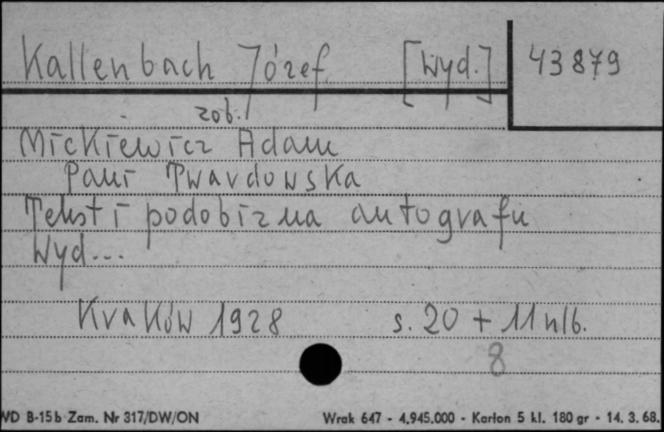 Kallenbach Józef [Wyd.] 43879
zob.
Mickiewicz Adam
Pani Twardowska
Tekst i podobizna autografu
Wyd...
Kraków 1928 s. 20 + 11 nlb.
8
WD B-15b Zam. Nr 317/DW/ON Wrak 647 - 4.945.000 - Karton 5 kl. 180 gr - 14. 3. 68.